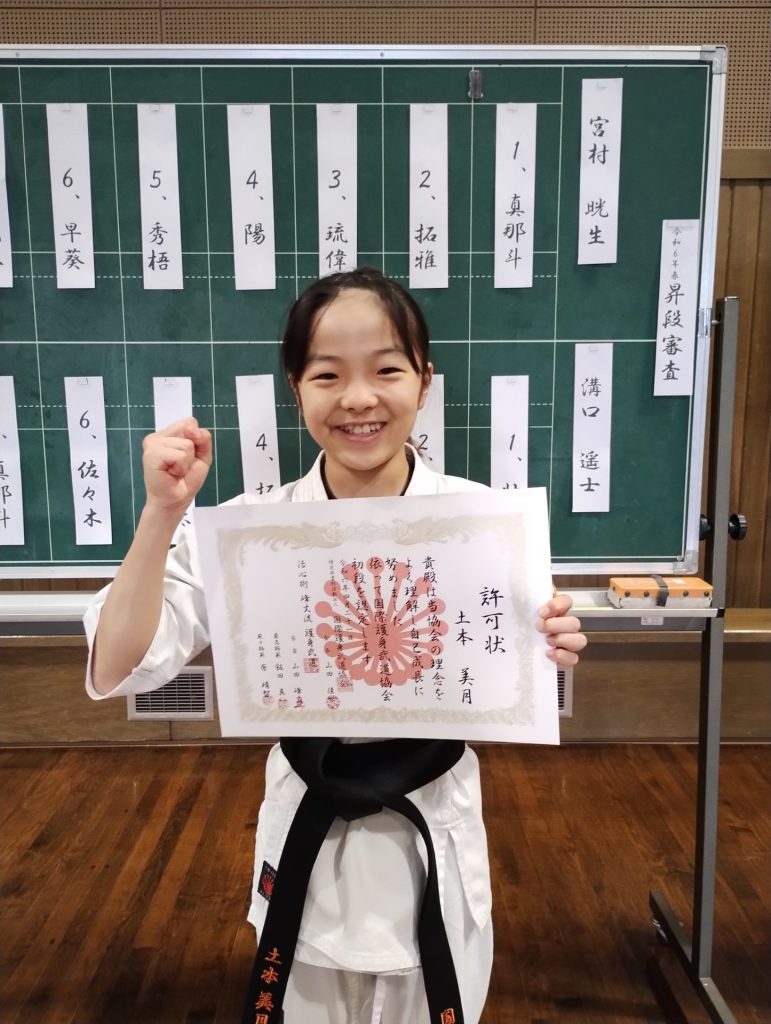 宮村 晄生
1、真那斗
2、拓雅
3、琉偉
4、陽
5、秀梧
6、早葵
令和6年春
昇段審査
溝口 遥士
1、
2、
4、拓
6、佐々木
真那斗
許可状
土本 美月
貴殿は当協会の理念を
よく理解し自己成長に
努めました
依って国際護身武道協会
初段を認定します
国際護身武道協会
山田
活心術 峰丈流 護身武道
宗家 山田
土本美月